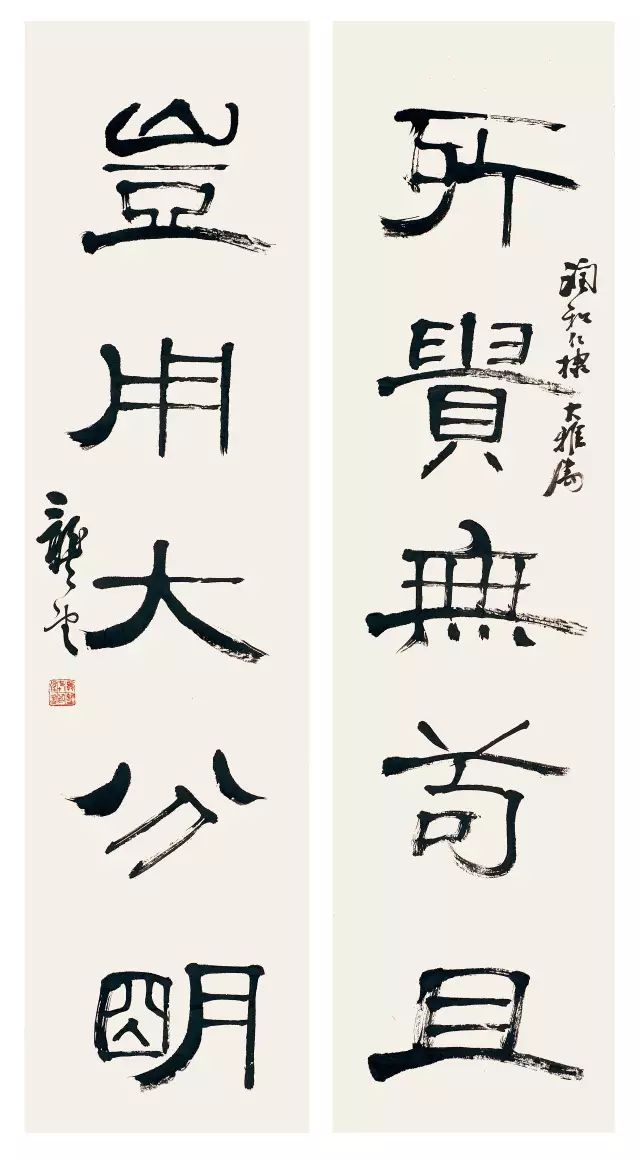 所貴無苟且
潤和仁棣 大雅屬
豈用大分明
龔望